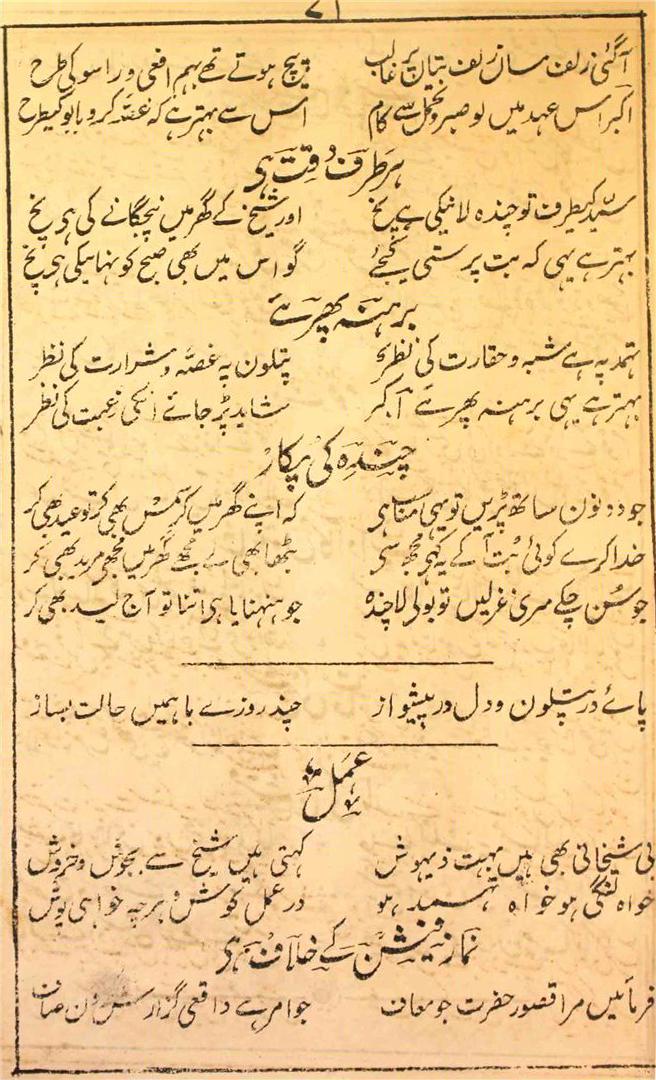 ۷۱
آگئی زلف مساں زلف بتاں پر غالب پیچ ہوتے تھے بہم افعی و راسو کی طرح
اکبر اس عہد میں لو صبر و تحمل سے کام اس سے بہتر ہے کہ غصہ کرو بابو کیطرح
ہر طرف دقت ہی
سید کیطرف تو چندہ لانیکی ہے پخ اور شیخ کے گھر میں پنجگانے کی ہی پخ
بہتر ہے یہی کہ بت پرستی کیجئے گو اس میں بھی صبح کو نہانیکی ہی پخ
برہنہ پھریے
تہمد پہ ہے شبہ و حقارت کی نظر پتلون پہ غصہ و شرارت کی نظر
بہتر ہے یہی برہنہ پھریے اکبر شاید پڑ جائے انکی رغبت کی نظر
چندہ کی پکار
جو دونوں ساتھ پڑیں تو یہی مناسب ہی کہ اپنے گھر میں کرسمس بھی کر تو عید بھی کر
خدا کرے کوئی بت آکے یہ کہی مجھ سی بٹھا بھی لے مجھے گھر میں مجھی مرید بھی کر
جو سن چکے مری غزلیں تو بولی لا چندہ جو ہنہنایا ہی اتنا تو آج لید بھی کر
پائے در پتلون و دل در پیشواز چند روزے با ہمیں حالت بساز
عمل
بی شیخانی بھی ہیں بہت ذیہوش کہتی ہیں شیخ سے بجوش و خروش
خواہ لنگی ہو خواہ تہمد ہو در عمل کوش و ہرچہ خواہی پوش
نماز فیشن کے خلاف ہی
فرمائیں مرا قصور حضرت جو معاف جو امر ہے واقعی گزارش کروں صاف